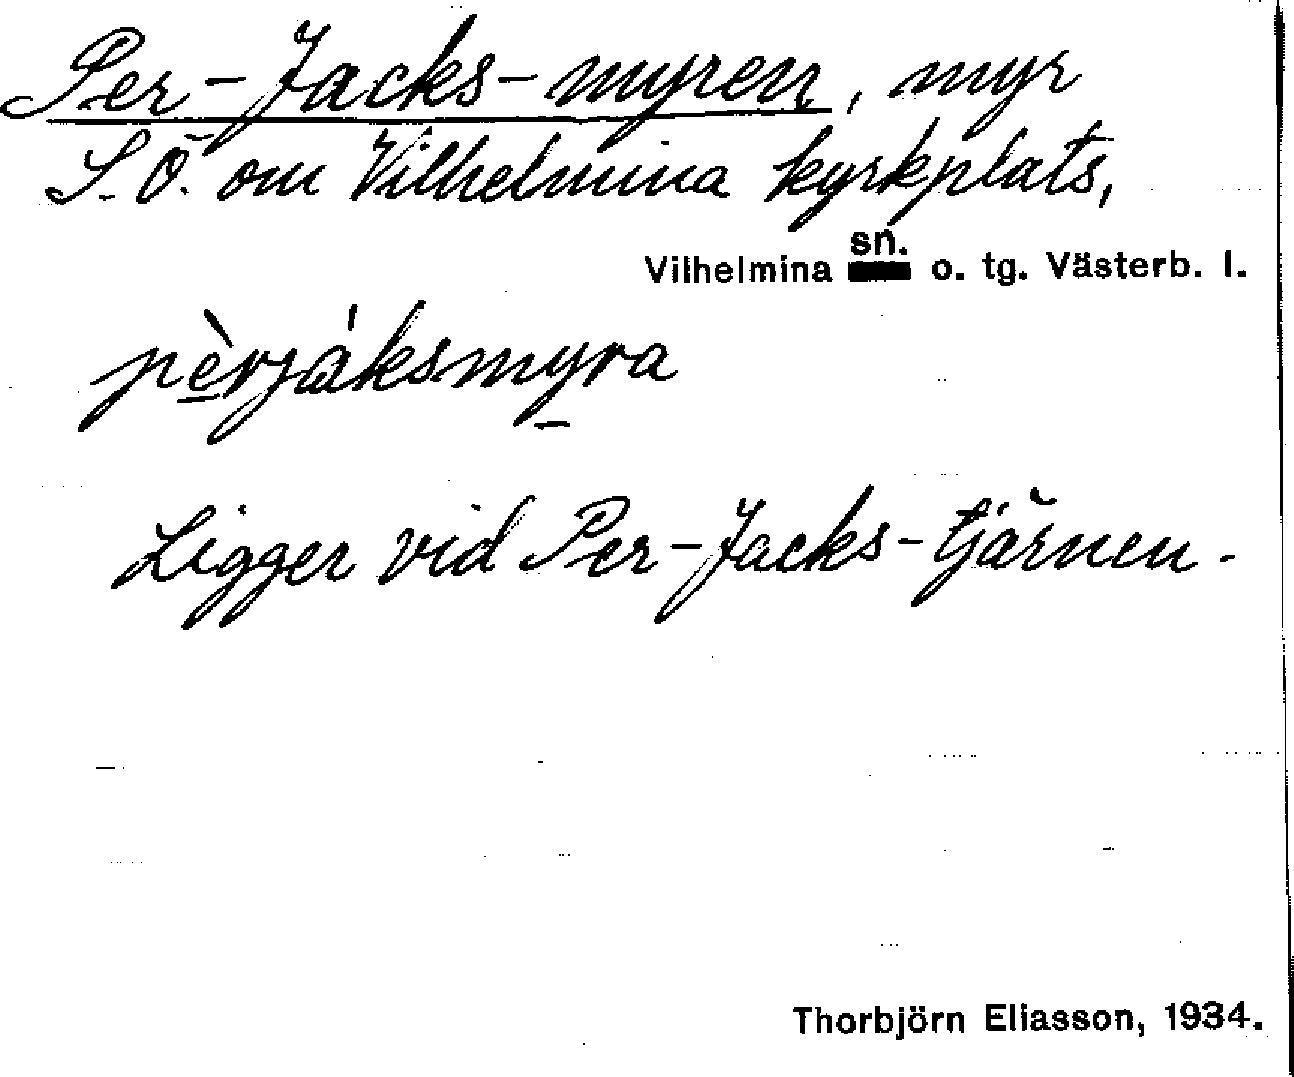 Per-Jacks-myren, myr
S.Ö. om Vilhelmina kyrkplats,
Vilhelmina sn. o. tg. Västerb. l.
pèrjáksmyra
Ligger vid Per-Jacks-tjärnen.
Thorbjörn Eliasson, 1934.